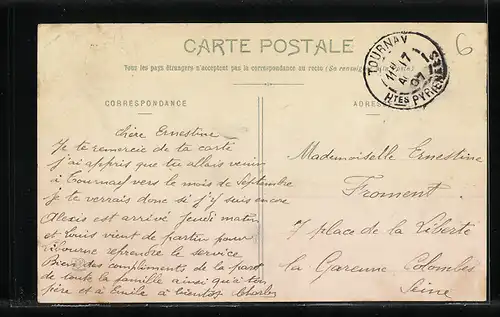 CARTE POSTALE
Tous les pays étrangers n'acceptent pas la correspondance au recto (Se renseigner à la poste)
CORRESPONDANCE
ADRESSE
TOURNAY
17
07
Htes PYRÉNÉES
6
Chère Ernestine
Je te remercie de ta carte
j'ai appris que tu allais venir
à Tournay vers le mois de Septembre
je te verrais donc si j'y suis encore
Alexis est arrivé jeudi matin
et Louis vient de partir pour
Libourne reprendre le service
Bien des compliments de la part
de toute la famille ainsi qu'à ton
père et à Emile à bientôt Charles
Mademoiselle Ernestine
Froment
7 place de la Liberté
la Garenne Colombes
Seine